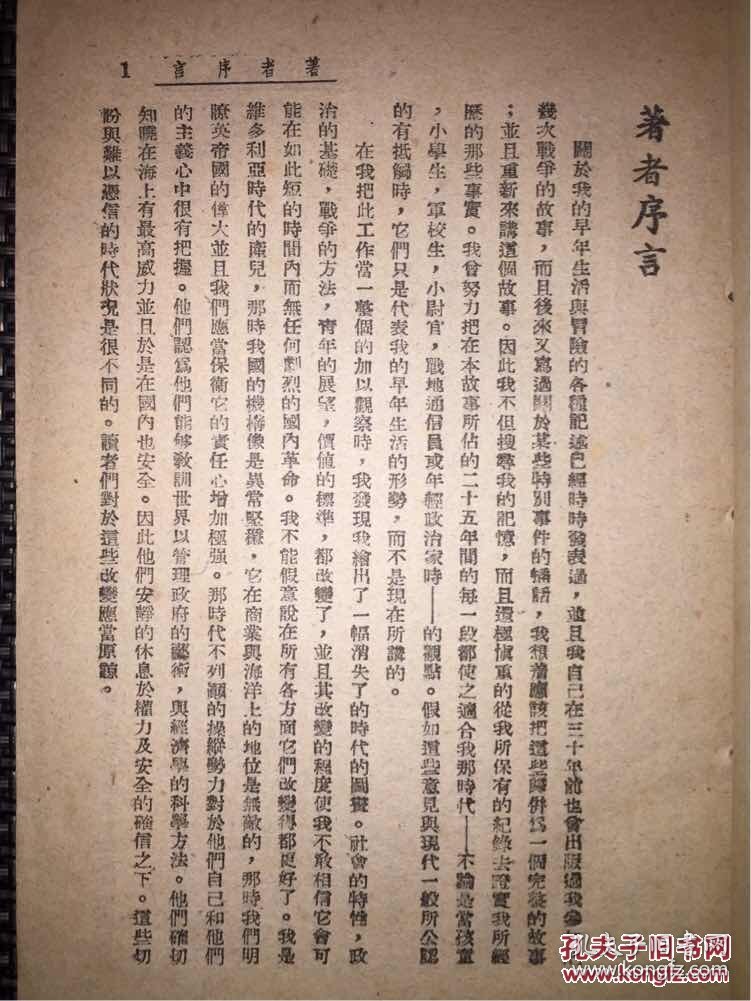 著者序言 1
著者序言
關於我的早年生活與冒險的各種記述已經時時發表過，並且我自己在三十年前也曾出版過我參
幾次戰爭的故事，而且後來又寫過關於某些特別事件的 話，我想着應該把這些歸併爲一個完整的故事
；並且重新來講這個故事。因此我不但搜尋我的記憶，而且還極愼重的從我所保有的紀錄去證實我所經
歷的那些事實。我曾努力把在本故事所佔的二十五年間的每一段都使之適合我那時代——不論是當孩童
，小學生，軍校生，小尉官，戰地通信員或年輕政治家時——的觀點。假如這些意見與現代一般所公認
的有抵觸時，它們只是代表我的早年生活的形勢，而不是現在所講的。
在我把此工作當一整個的加以觀察時，我發現我繪出了一幅消失了的時代的圖畫。社會的特性，政
治的基礎，戰爭的方法，靑年的展望，價値的標準，都改變了，並且其改變的程度使我不敢相信它會可
能在如此短的時間內而無任何劇烈的國內革命。我不能假意說在所有各方面它們改變得都更好了。我是
維多利亞時代的產兒，那時我國的機構像是異常堅穩，它在商業與海洋上的地位是無敵的，那時我們明
瞭英帝國的偉大並且我們應當保衛它的責任心增加極强。那時代不列顚的操縱勢力對於他們自己和他們
的主義心中很有把握。他們認爲他們能够敎訓世界以管理政府的藝術，與經濟學的科學方法。他們確切
知曉在海上有最高威力並且於是在國內也安全。因此他們安靜的休息於權力及安全的確信之下。這些切
盼與難以憑信的時代狀況是很不同的。讀者們對於這些改變應當原諒。
孔夫子旧书网
www.kongfz.com